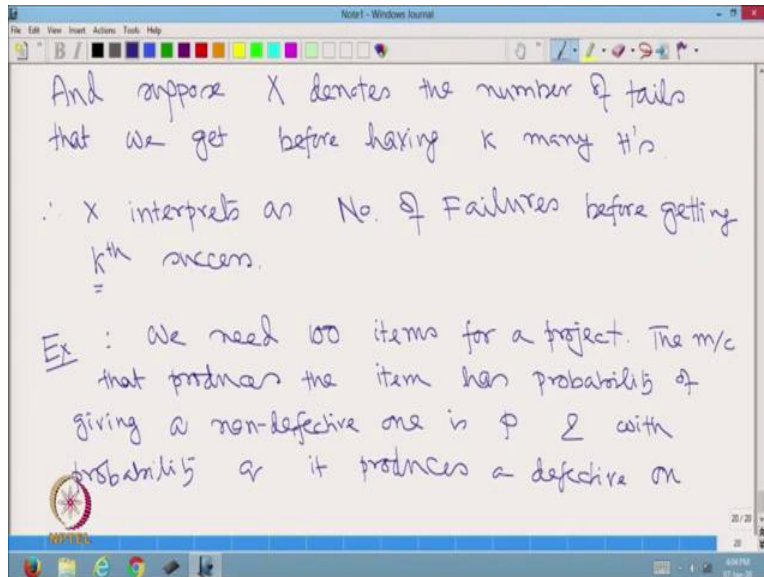 Note1 - Windows Journal
File Edit View Insert Actions Tools Help
And suppose X denotes the number of tails
that we get before having K many H's.
∴ X interprets as No. of Failures before getting
Kth success.
Ex : We need 100 items for a project. The m/c
that produces the item has probability of
giving a non-defective one is p & with
probability q it produces a defective on
NPTEL
20 / 20
20
6:04 PM